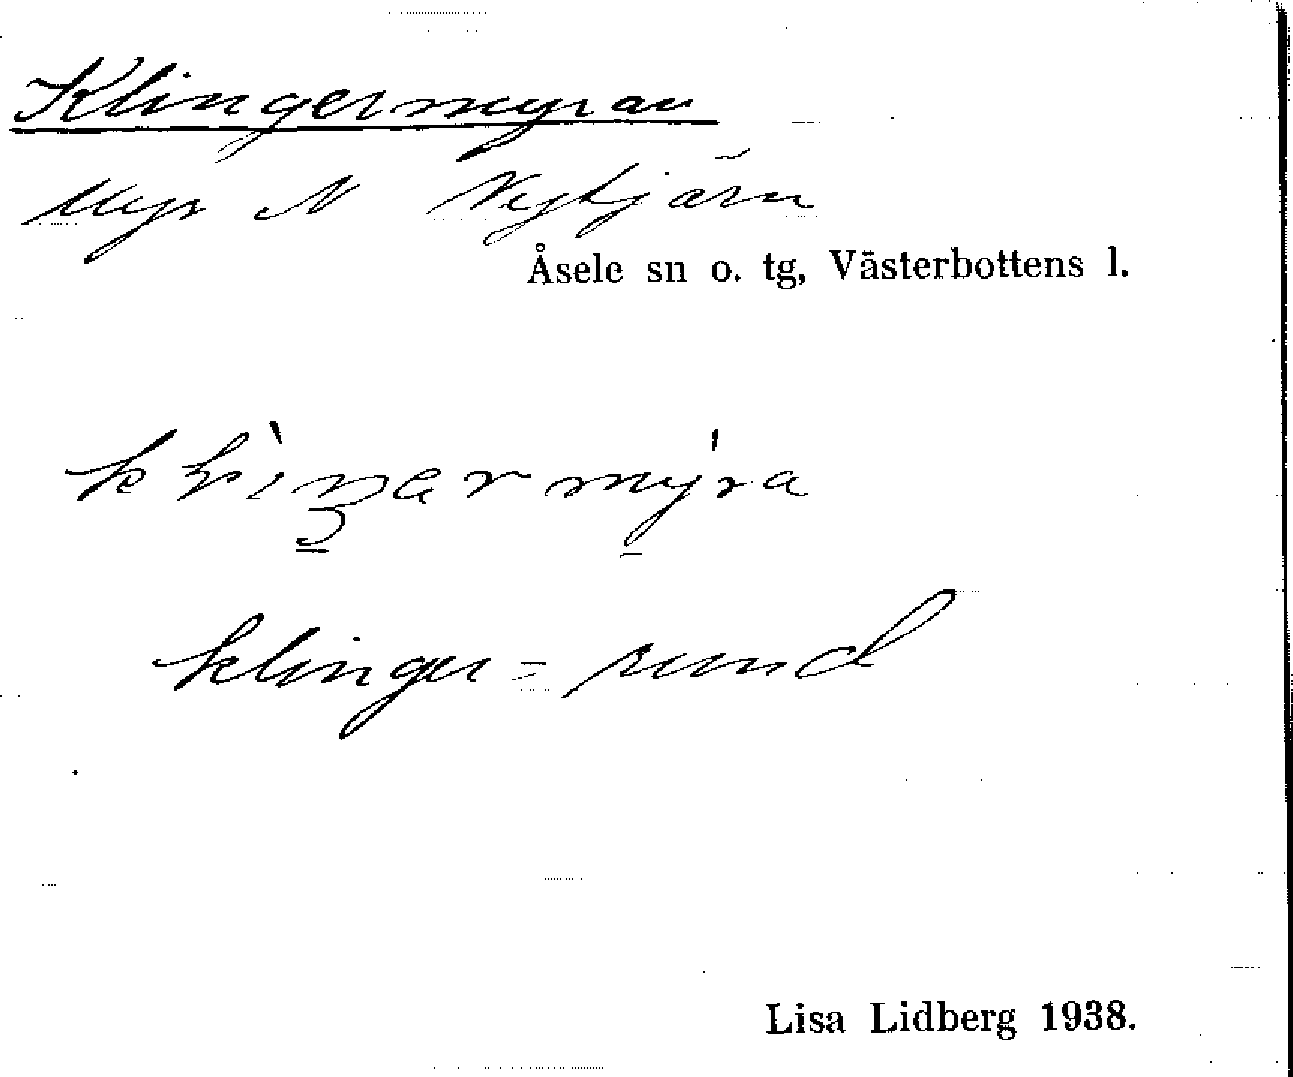 Klingermyran
Myr N Vegtjärn
Åsele sn o. tg, Västerbottens l.
klinger = rund
Lisa Lidberg 1938.